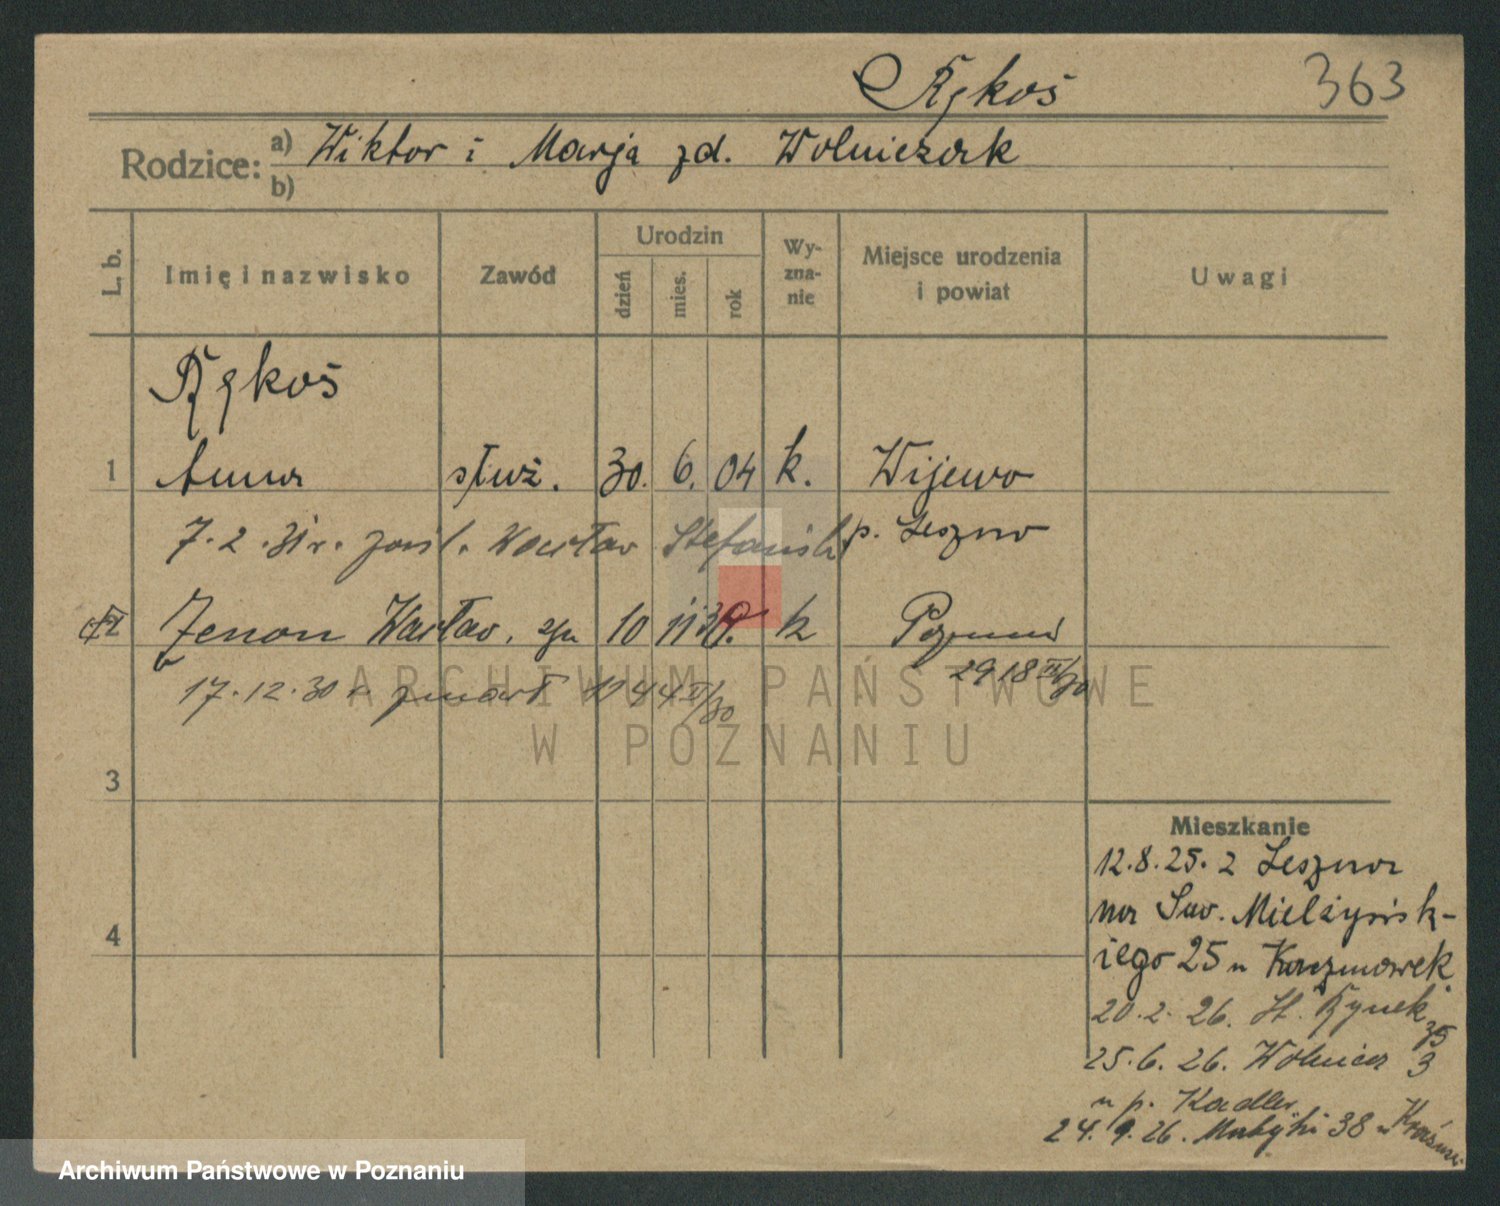 Rękoś 363
Rodzice: a) Wiktor i Marja zd. Wolniczak
b)
L. b. Imię i nazwisko Zawód Urodzin dzień mies. rok Wyznanie Miejsce urodzenia i powiat Uwagi
Rękoś
1 Anna służ. 30. 6. 04 k. Wijewo
7.2.31 r. zaśl. Wacław Stefański p. Leszno
2 Zenon Wacław, syn 10 11 30. k Poznań
2918
17.12.30 r. zmarł
ARCHIWUM PAŃSTWOWE
W POZNANIU
3
4
Mieszkanie
12.8.25. z Leszna
na Sew. Mielżyńsk-
iego 25 u Kaczmarek.
20.2.26. St. Rynek 35
25.6.26. Wolnica 3
u p. Kadler
24.9.26. Matejki 38 u
Archiwum Państwowe w Poznaniu